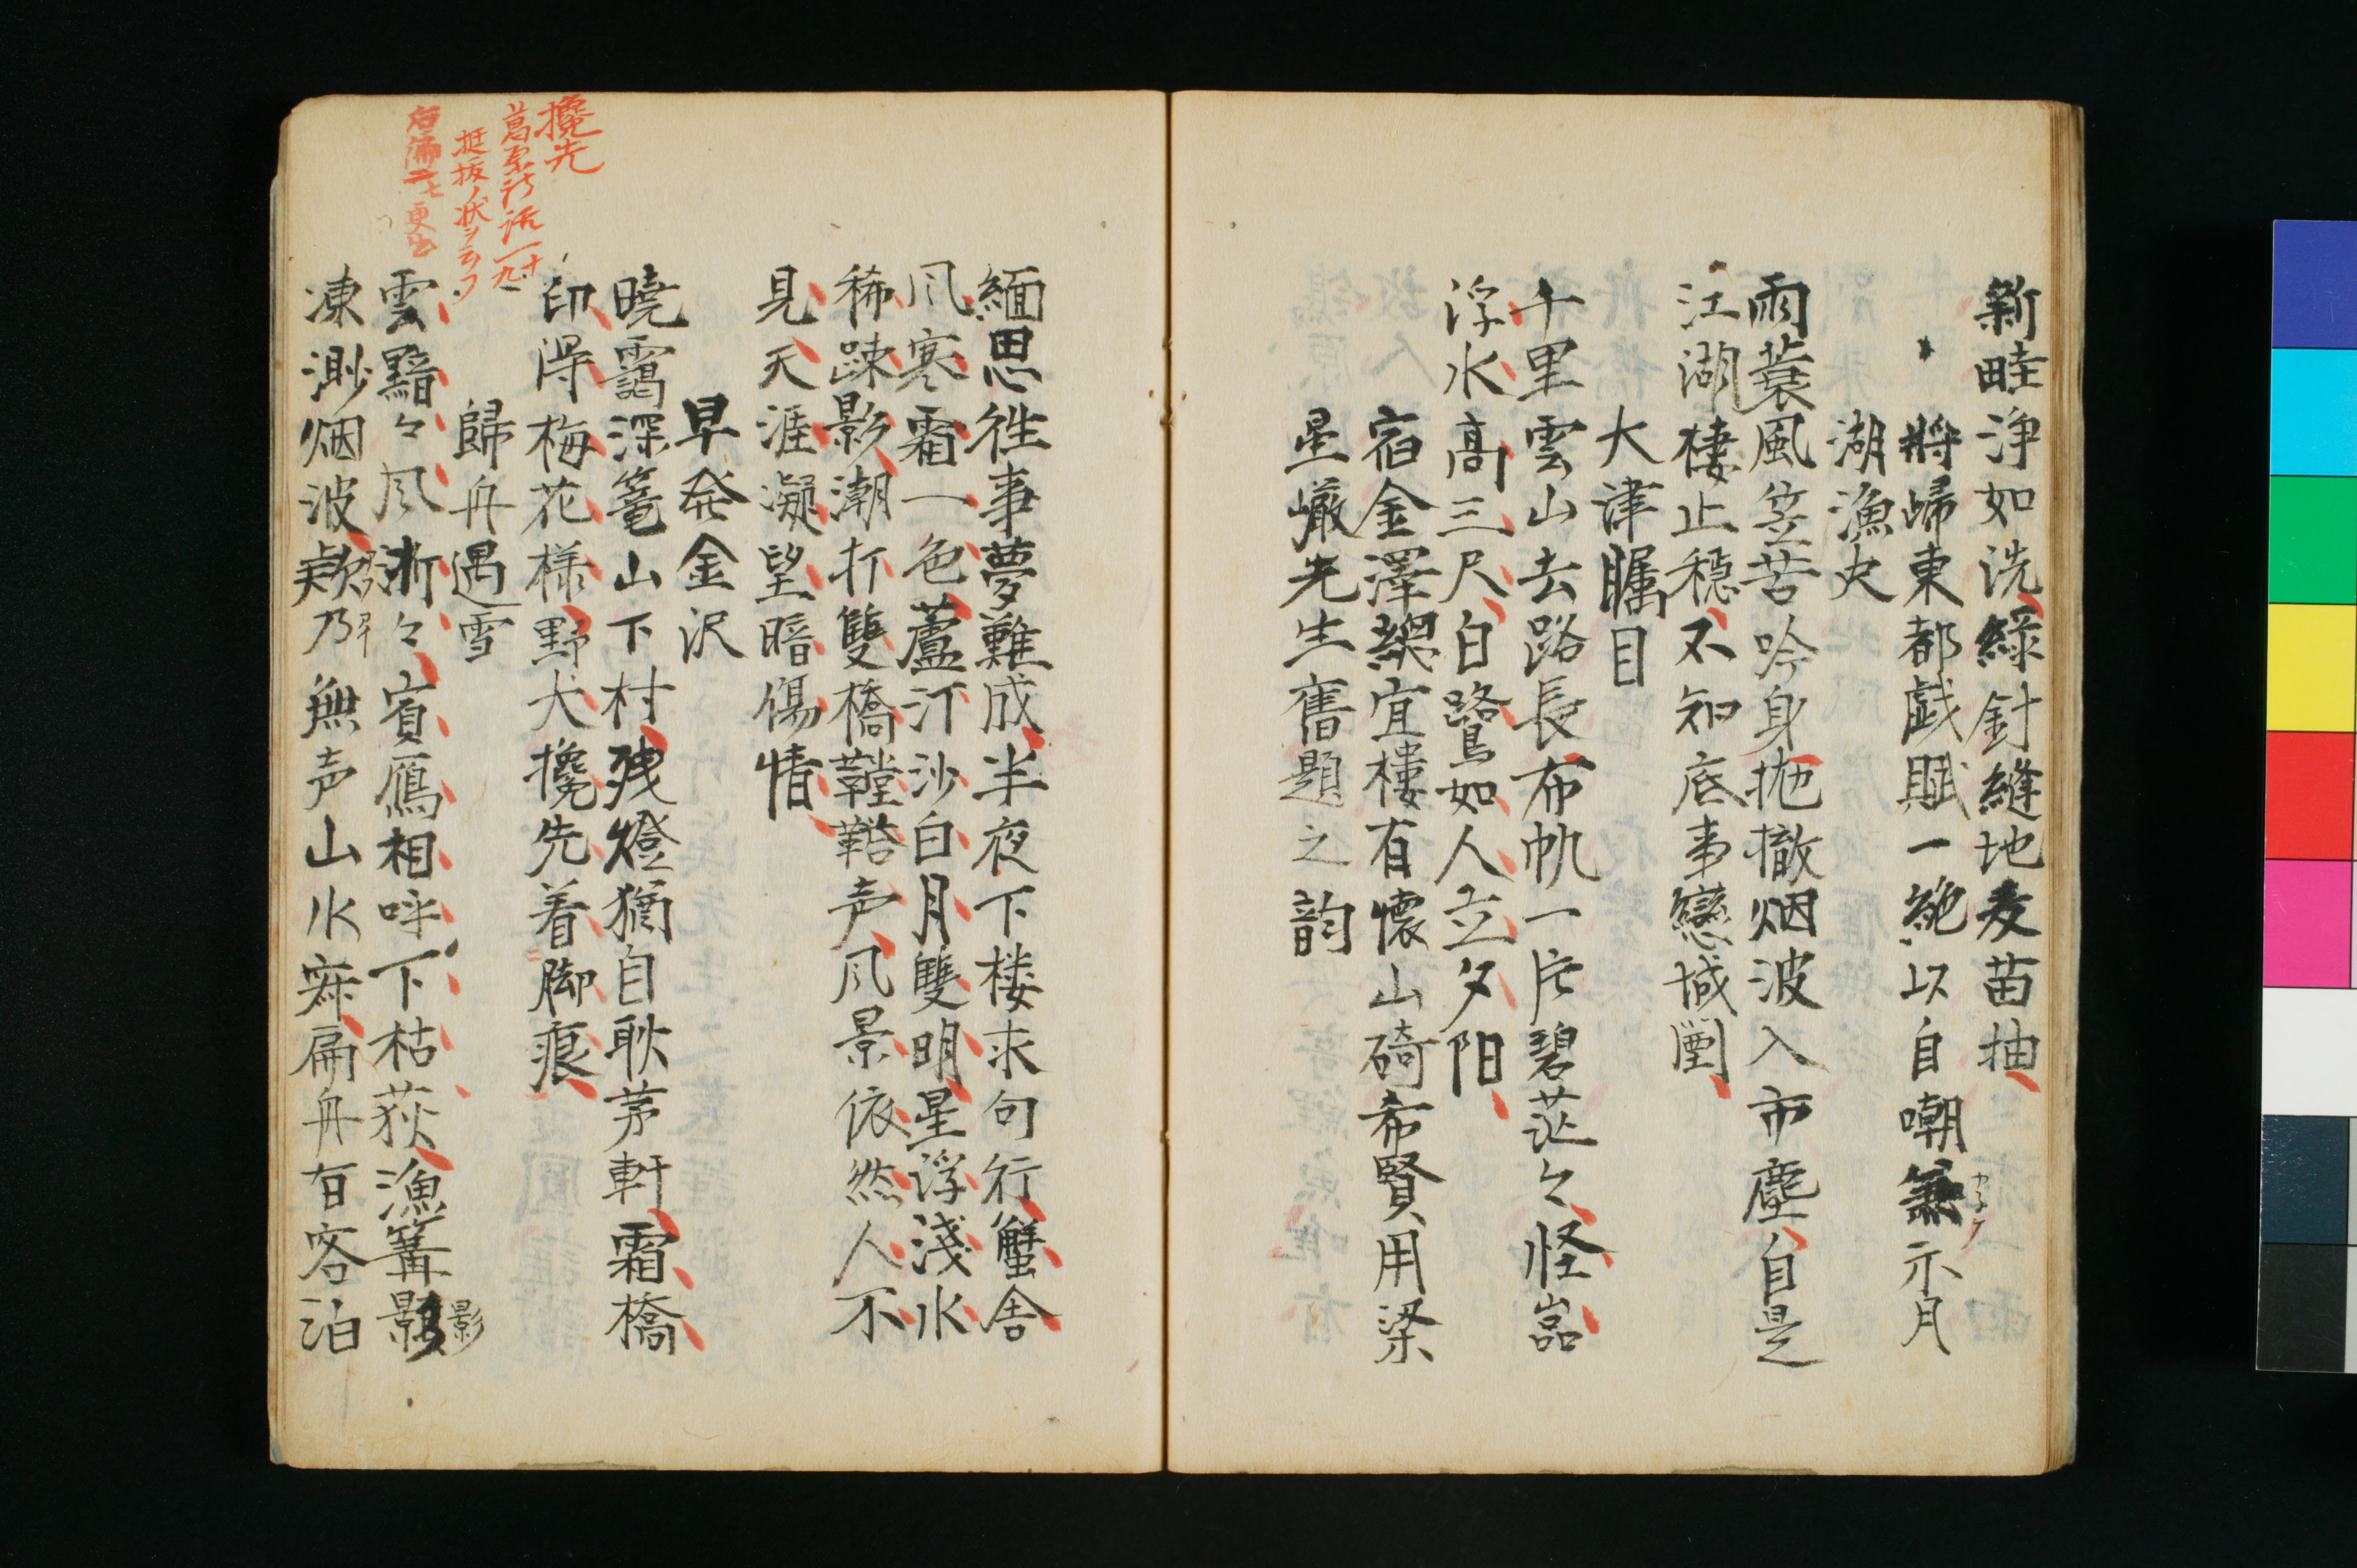 新畦浄如洗綠針縫地麦苗抽
將帰東都戯賦一絶以自嘲兼示月
湖漁史
雨蓑風笠苦吟身抛撤烟波入市塵自是
江湖棲止穏不知底事戀城闉
大津矚目
千里雲山去路長布帆一片碧茫々怪嵓
浮水高三尺白鷺如人立夕陽
宿金澤總宜樓有懷山碕希賢用梁
星巌先生舊題之韵
緬思往事夢難成半夜下楼求句行蟹舎
风寒霜一色蘆汀沙白月雙明星浮淺水
稀踈影潮打雙橋鞺鞳声风景依然人不
見天涯凝望暗傷情
早発金沢
曉靄深篭山下村残燈猶自耿茅軒霜橋
印得梅花様野犬攙先着脚痕
攙先
挺抜ノ状ヲ云フ
歸舟遇雪
雲黯々风淅々賓鴈相呼下枯荻漁篝影
影
凍渺烟波欵乃無声山水寂扁舟有客泊